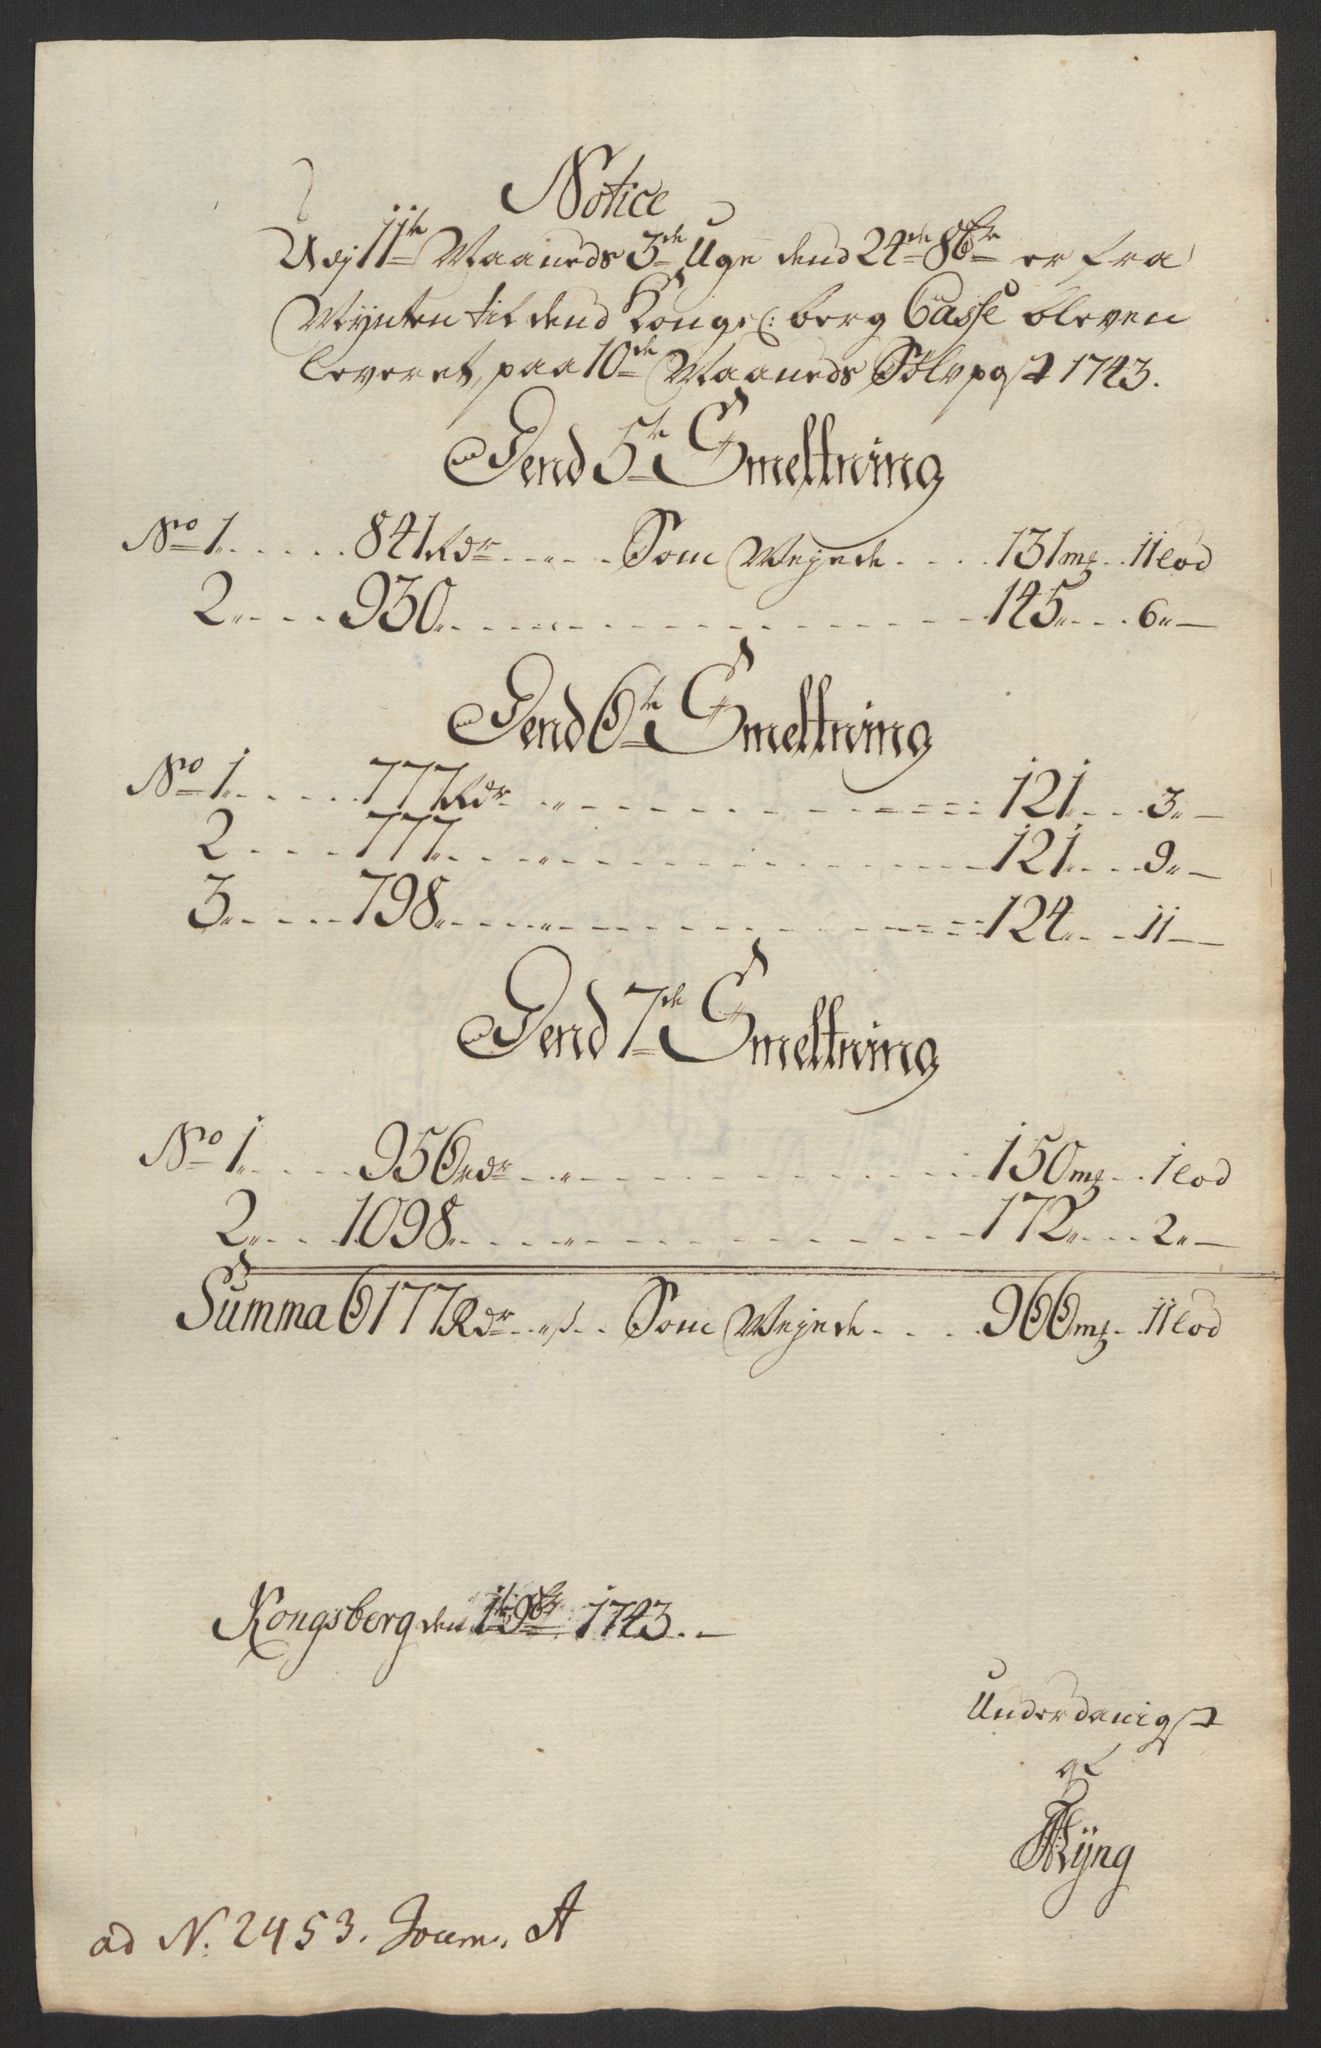 Notice
Udj 11te Maaneds 3de Uge dend 24de 8bre er fra
Mynten til dend Kongs: berg Casse bleven
leveret, paa 10de Maaneds Sølvpgst 1743.
Dend 5te Smeltning
No 1. 841 Rdr Som Weyede 131 mg 11 lod
2. 930 145 6
Dend 6te Smeltning
No 1. 777 Rdr 121 3
2 777 121 9
3. 798 124 11
Dend 7de Smeltning
No 1 956 rdr 150 mg 1 lod
2. 1098 172 2
Summa 6177 Rdr Som Weyede 966 mg 11 lod
Kongsberg den 1te 9br 1743.
Underdanigst
af
Ryng
ad N. 2453. Journ. A